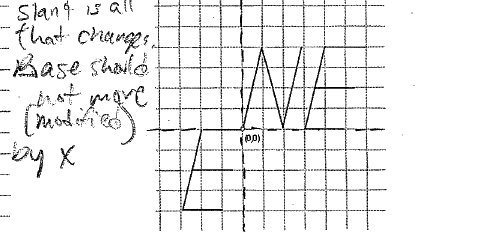 Slant is all
that changes.
Base should
not move
(modified)
by x
(0,0)